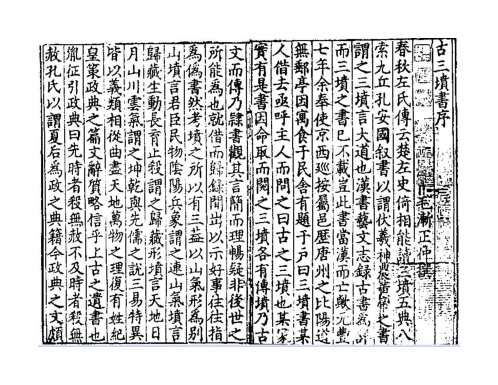 古三墳書序
毛漸正仲撰
春秋左氏傳云楚左史倚相能讀三墳五典八
索九丘孔安國叙書以謂伏犧神農黃帝之書
謂之三墳言大道也漢書藝文志錄古書爲詳
而三墳之書已不載豈此書當漢而亡歟元豊
七年余奉使京西巡按屬邑歷唐州之比陽道
無郵亭因寓食于民舍有題于戶曰三墳書某
人借去亟呼主人而問之曰古之三墳也某家
實有是書因命取而閱之三墳各有傳墳乃古
文而傳乃隷書觀其言簡而理暢疑非後世之
所能爲也就借而歸錄間出以示好事往往指
爲僞書然考墳之所以有三葢以山氣形爲别
山墳言君臣民物陰陽兵象謂之連山氣墳言
歸藏生動長育止殺謂之歸藏形墳言天地日
月山川雲氣謂之坤乾與先儒之說三易特異
皆以義類相從曲盡天地萬物之理復有姓紀
皇策政典之篇文辭質略信乎上古之遺書也
胤征引政典曰先時者殺無赦不及時者殺無
赦孔氏以謂夏后爲政之典籍今政典之文頗